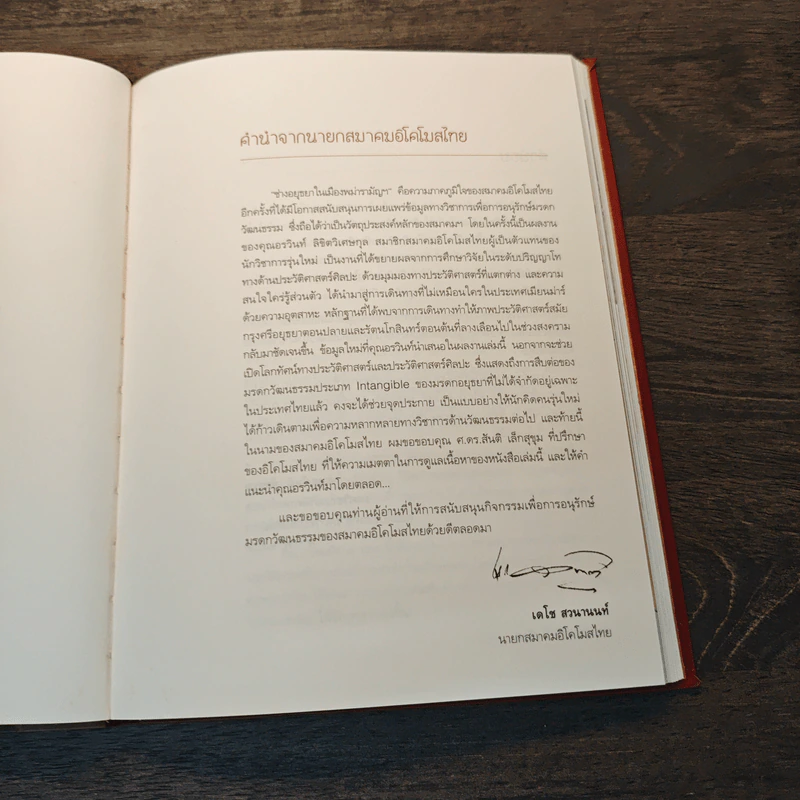 คำนำจากนายกสมาคมอิโคโมสไทย
"ช่างอยุธยาในเมืองพม่ารามัญฯ" คือความภาคภูมิใจของสมาคมอิโคโมสไทย
อีกครั้งที่ได้มีโอกาสสนับสนุนการเผยแพร่ข้อมูลทางวิชาการเพื่อการอนุรักษ์มรดก
วัฒนธรรม ซึ่งถือได้ว่าเป็นวัตถุประสงค์หลักของสมาคมฯ โดยในครั้งนี้เป็นผลงาน
ของคุณอรวินท์ ลิขิตวิเศษกุล สมาชิกสมาคมอิโคโมสไทยผู้เป็นตัวแทนของ
นักวิชาการรุ่นใหม่ เป็นงานที่ได้ขยายผลจากการศึกษาวิจัยในระดับปริญญาโท
ทางด้านประวัติศาสตร์ศิลปะ ด้วยมุมมองทางประวัติศาสตร์ที่แตกต่าง และความ
สนใจใคร่รู้ส่วนตัว ได้นำมาสู่การเดินทางที่ไม่เหมือนใครในประเทศเมียนม่าร์
ด้วยความอุตสาหะ หลักฐานที่ได้พบจากการเดินทางทำให้ภาพประวัติศาสตร์สมัย
กรุงศรีอยุธยาตอนปลายและรัตนโกสินทร์ตอนต้นที่ลางเลือนไปในช่วงสงคราม
กลับมาชัดเจนขึ้น ข้อมูลใหม่ที่คุณอรวินท์นำเสนอในผลงานเล่มนี้ นอกจากจะช่วย
เปิดโลกทัศน์ทางประวัติศาสตร์และประวัติศาสตร์ศิลปะ ซึ่งแสดงถึงการสืบต่อของ
มรดกวัฒนธรรมประเภท Intangible ของมรดกอยุธยาที่ไม่ได้จำกัดอยู่เฉพาะ
ในประเทศไทยแล้ว คงจะได้ช่วยจุดประกาย เป็นแบบอย่างให้นักคิดคนรุ่นใหม่
ได้ก้าวเดินตามเพื่อความหลากหลายทางวิชาการด้านวัฒนธรรมต่อไป และท้ายนี้
ในนามของสมาคมอิโคโมสไทย ผมขอขอบคุณ ศ.ดร.สันติ เล็กสุขุม ที่ปรึกษา
ของอิโคโมสไทย ที่ให้ความเมตตาในการดูแลเนื้อหาของหนังสือเล่มนี้ และให้คำ
แนะนำคุณอรวินท์มาโดยตลอด...
และขอขอบคุณท่านผู้อ่านที่ให้การสนับสนุนกิจกรรมเพื่อการอนุรักษ์
มรดกวัฒนธรรมของสมาคมอิโคโมสไทยด้วยดีตลอดมา
เดโช สวนานนท์
นายกสมาคมอิโคโมสไทย